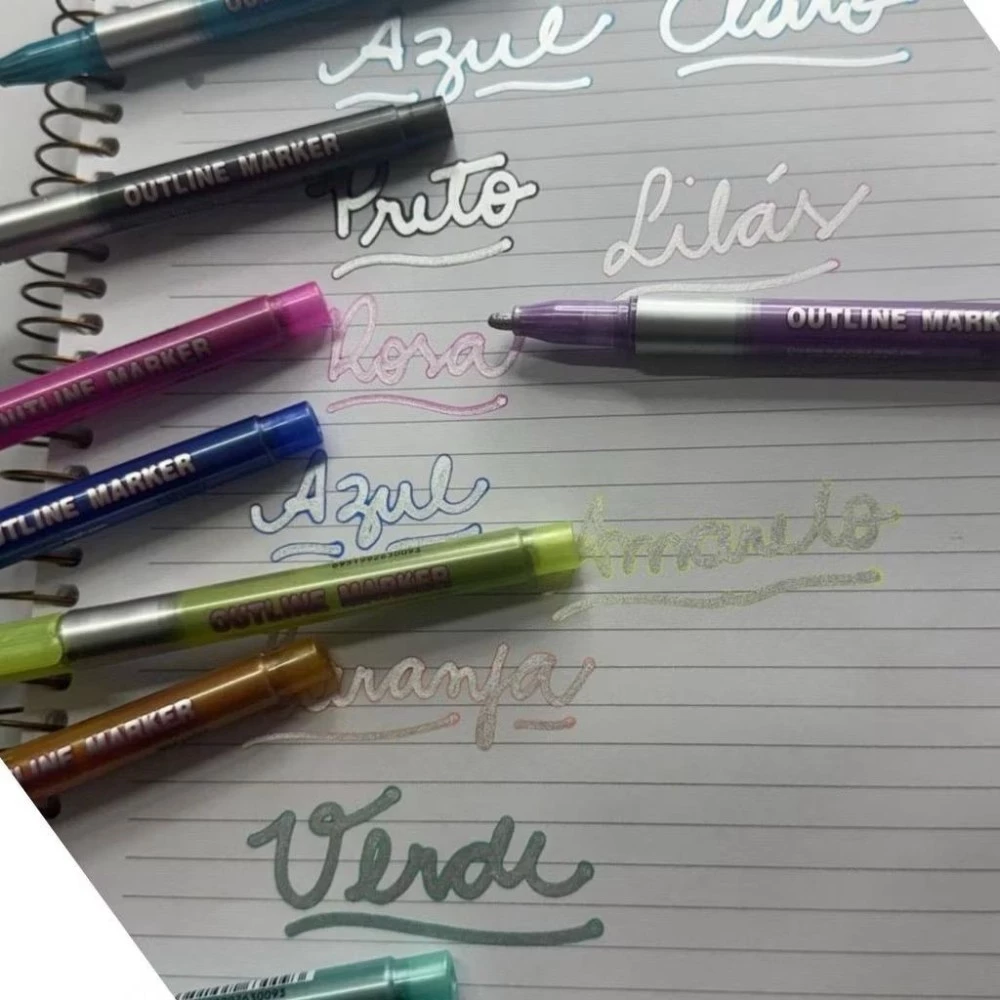 Azul Claro
OUTLINE MARKER
Preto
Lilás
OUTLINE MARK
Rosa
OUTLINE MARKER
Azul
UTLINE MARKER
Amarelo
OUTLINE MARKER
aranja
LINE MARKER
Verde